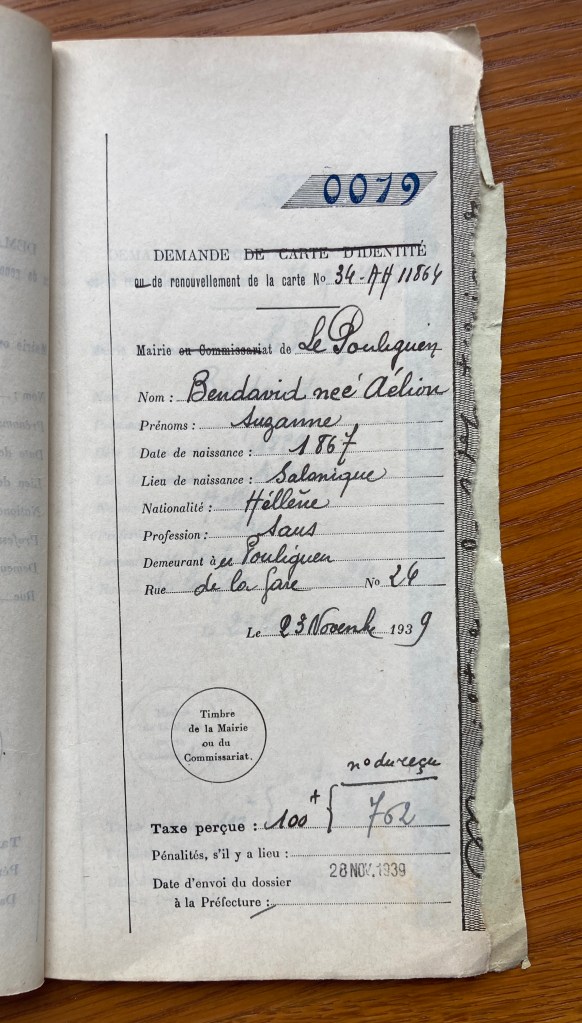 0079
DEMANDE DE CARTE D'IDENTITÉ
ou de renouvellement de la carte No 34-AH 11864
Mairie ou Commissariat de Le Pouliguen
Nom : Bendavid neé Aélion
Prénoms : Suzanne
Date de naissance : 1867
Lieu de naissance : Salonique
Nationalité : Héllène
Profession : Sans
Demeurant à Pouliguen
Rue de la Gare No 26
Le 23 Novembre 1939
Timbre
de la Mairie
ou du
Commissariat.
no du reçu
Taxe perçue : 100 762
Pénalités, s'il y a lieu :
28 NOV. 1939
Date d'envoi du dossier
à la Préfecture :